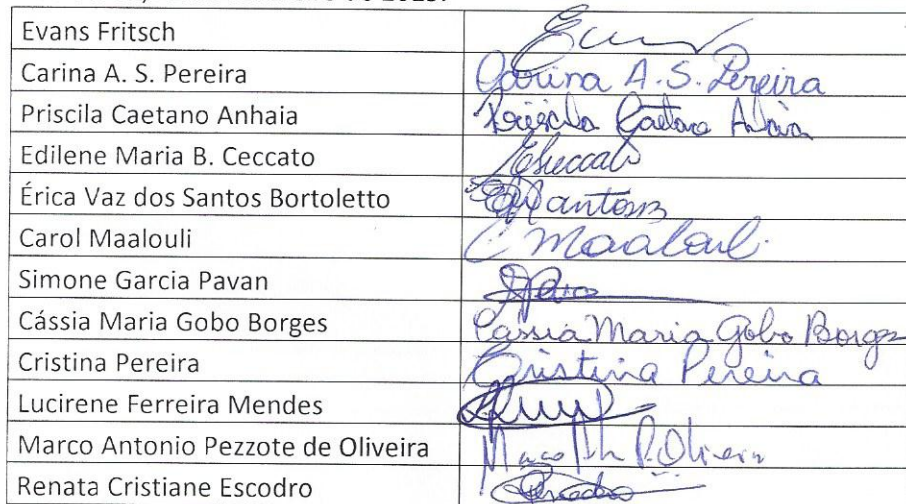 2023.
Evans Fritsch
Carina A. S. Pereira Carina A. S. Pereira
Priscila Caetano Anhaia Priscila Caetano
Edilene Maria B. Ceccato
Érica Vaz dos Santos Bortoletto
Carol Maalouli C Maalouli
Simone Garcia Pavan
Cássia Maria Gobo Borges Cássia Maria Gobo Borges
Cristina Pereira Cristina Pereira
Lucirene Ferreira Mendes
Marco Antonio Pezzote de Oliveira
Renata Cristiane Escodro